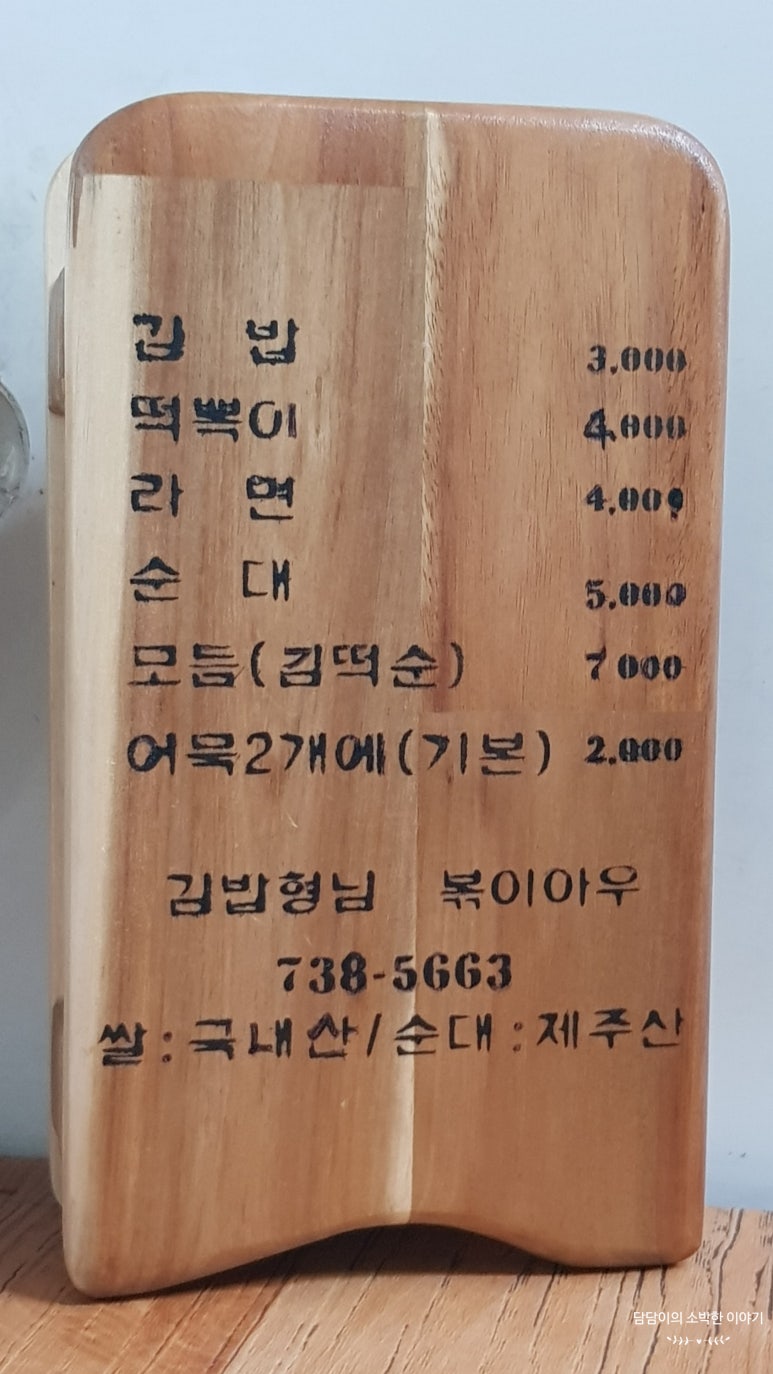 김 밥 3,000
떡뽁이 4,000
라 면 4,000
순 대 5,000
모듬(김떡순) 7 000
어묵2개에(기본) 2.000
김밥형님 볶이아우
738-5663
쌀:국내산/순대:제주산
담담이의 소박한 이야기